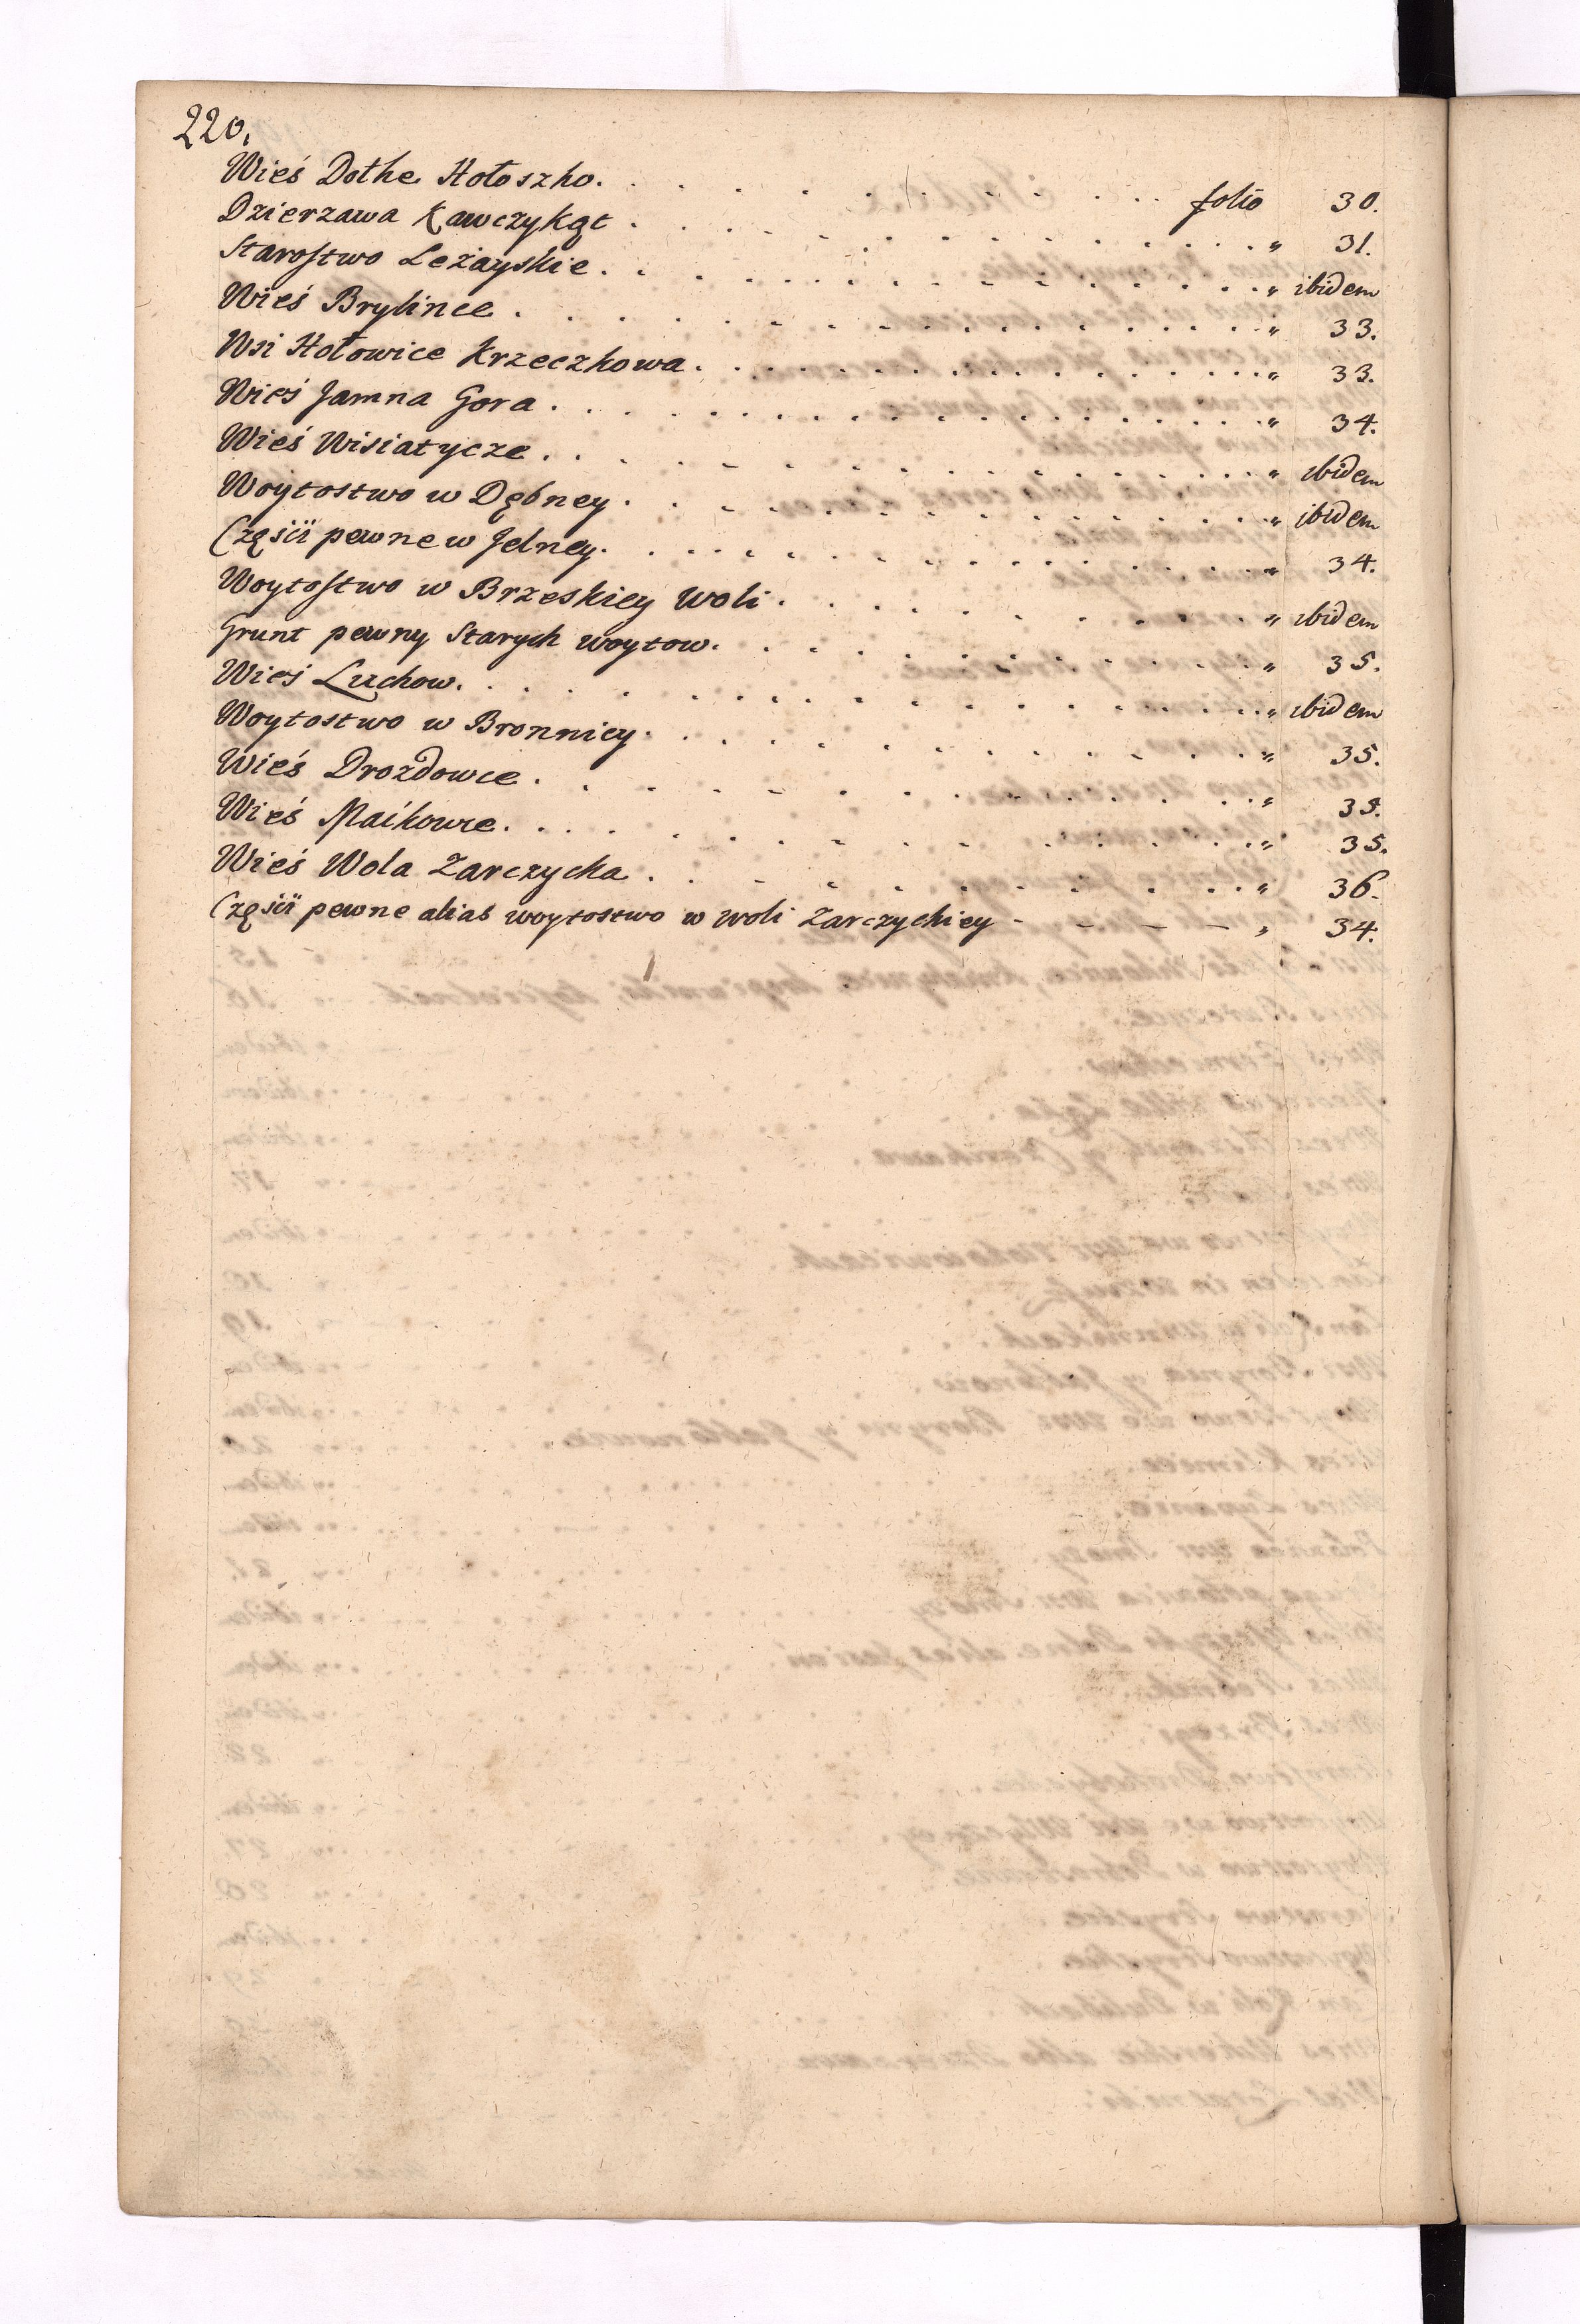 220.
Wieś Dothe Hołoszko. . . . . . . . . . folio 30.
Dzierzawa Kawczykąt . . . . . . . . . . " 31.
Starostwo Leżayskie . . . . . . . . . . " ibidem
Wieś Brylince . . . . . . . . . . " 33.
Wsi Hołowice Krzeczkowa . . . . . . . . . . " 33.
Wieś Jamna Gora . . . . . . . . . . " 34.
Wieś Wisiatycze . . . . . . . . . . " ibidem
Woytostwo w Dębney . . . . . . . . . . " ibidem
Częsii pewne w Jelney . . . . . . . . . . " 34.
Woytostwo w Brzeskiey Woli . . . . . . . . . . " ibidem
Grunt pewny Starych woytow . . . . . . . . . . " 35.
Wieś Luchow . . . . . . . . . . " ibidem
Woytostwo w Bronnicy . . . . . . . . . . " 35.
Wieś Drozdowce . . . . . . . . . . " 35.
Wieś Maikowce . . . . . . . . . . " 35.
Wieś Wola Zarczycka . . . . . . . . . . " 36.
Częsii pewne alias woytostwo w woli Zarczyckiey - - - - " 34.